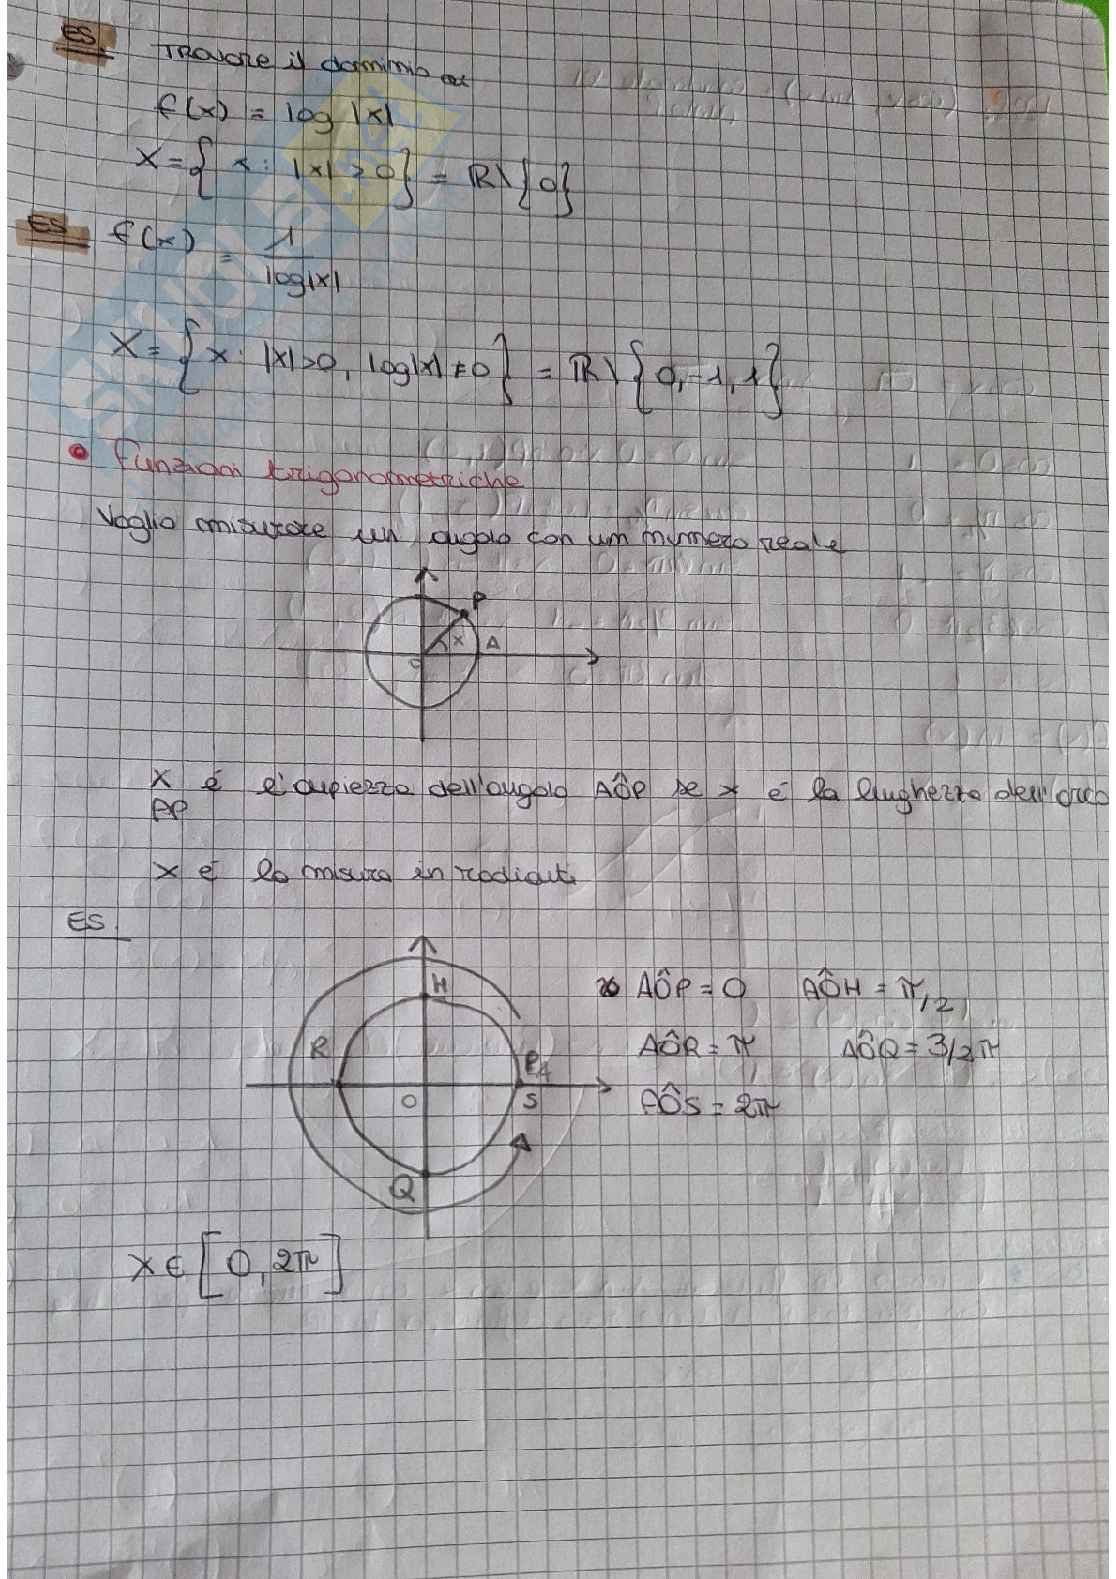 ES.
TROVARE il dominio di
f(x) = log |x|
X = { x : |x| > 0 } = ℝ \ {0}
ES. f(x) = 1 / log|x|
X = { x : |x|>0, log|x| ≠ 0 } = ℝ \ { 0, -1, 1 }
• Funzioni trigonometriche
Voglio misurare un angolo con un numero reale
P
x A
O
X é l'ampiezza dell'angolo AÔP se x é la lunghezza dell'arco
AP
X é la misura in radianti
ES.
H
AÔP = 0 AÔH = π/2
R
AÔR = π AÔQ = 3/2 π
P A
O S
AÔS = 2π
Q
X ∈ [0, 2π]